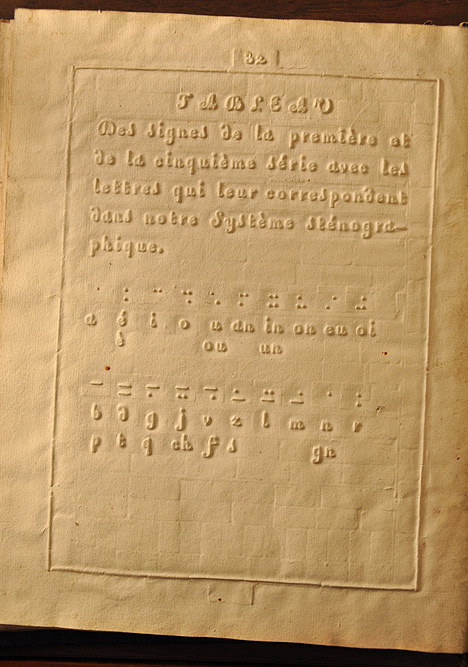 | 32 |
TABLEAU
Des signes de la première et
de la cinquième série avec les
lettres qui leur correspondent
dans notre Système sténogra-
phique.
a é i o u an in on eu oi
è ou un
b d g j v z l m n r
p t q ch f s gn